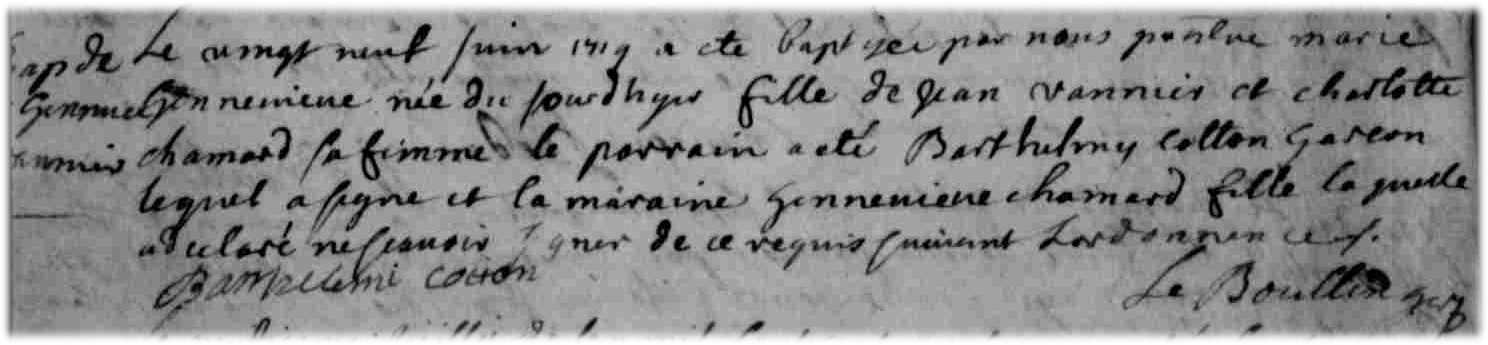 Bap de Le vingt neuf juin 1719 a ete baptisee par nous marie
Gennevieve née du jourdhyer fille de jean vannier et charlotte
vannier chamard sa femme le parrain a eté Barthelemy Cotton Garcon
lequel a signe et la maraine Gennevieve chamard fille laquelle
a declaré ne scavoir signer de ce requis suivant Lordonnence
Barthelemi Cotton Le Boullen